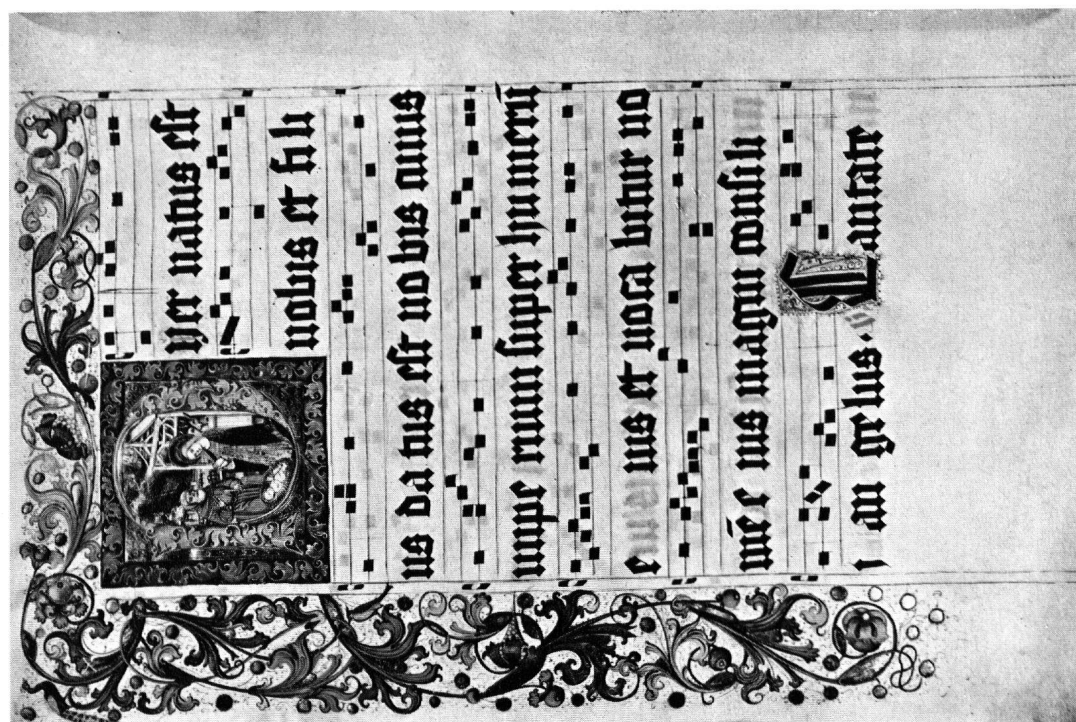 Puer natus est
nobis et fili
us da tus est nobis cuius
impe rium super humerū
e ius et voca bitur no
mē e ius magni consili
i an ge lus. Cantate